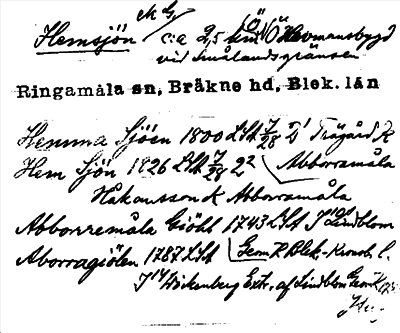 Hemsjön c:a 2,5 km NÖ Hermansbygd
vid Smålandsgränsen
Ringamåla sn, Bräkne hd, Blek. län
Hemma Sjön 1800 LSA 7/28 Trägård R
Hem Sjön 1826 LSA 7/28 2² Abborramåla
Håkansson K Abborramåla
Abborremåla Giöhl 1743 LSA Lindblom
Aborragiölen 1787 LSA Gem R Blek.-Kronob. l.
Wöckenberg Extr. af Lindblom Gem